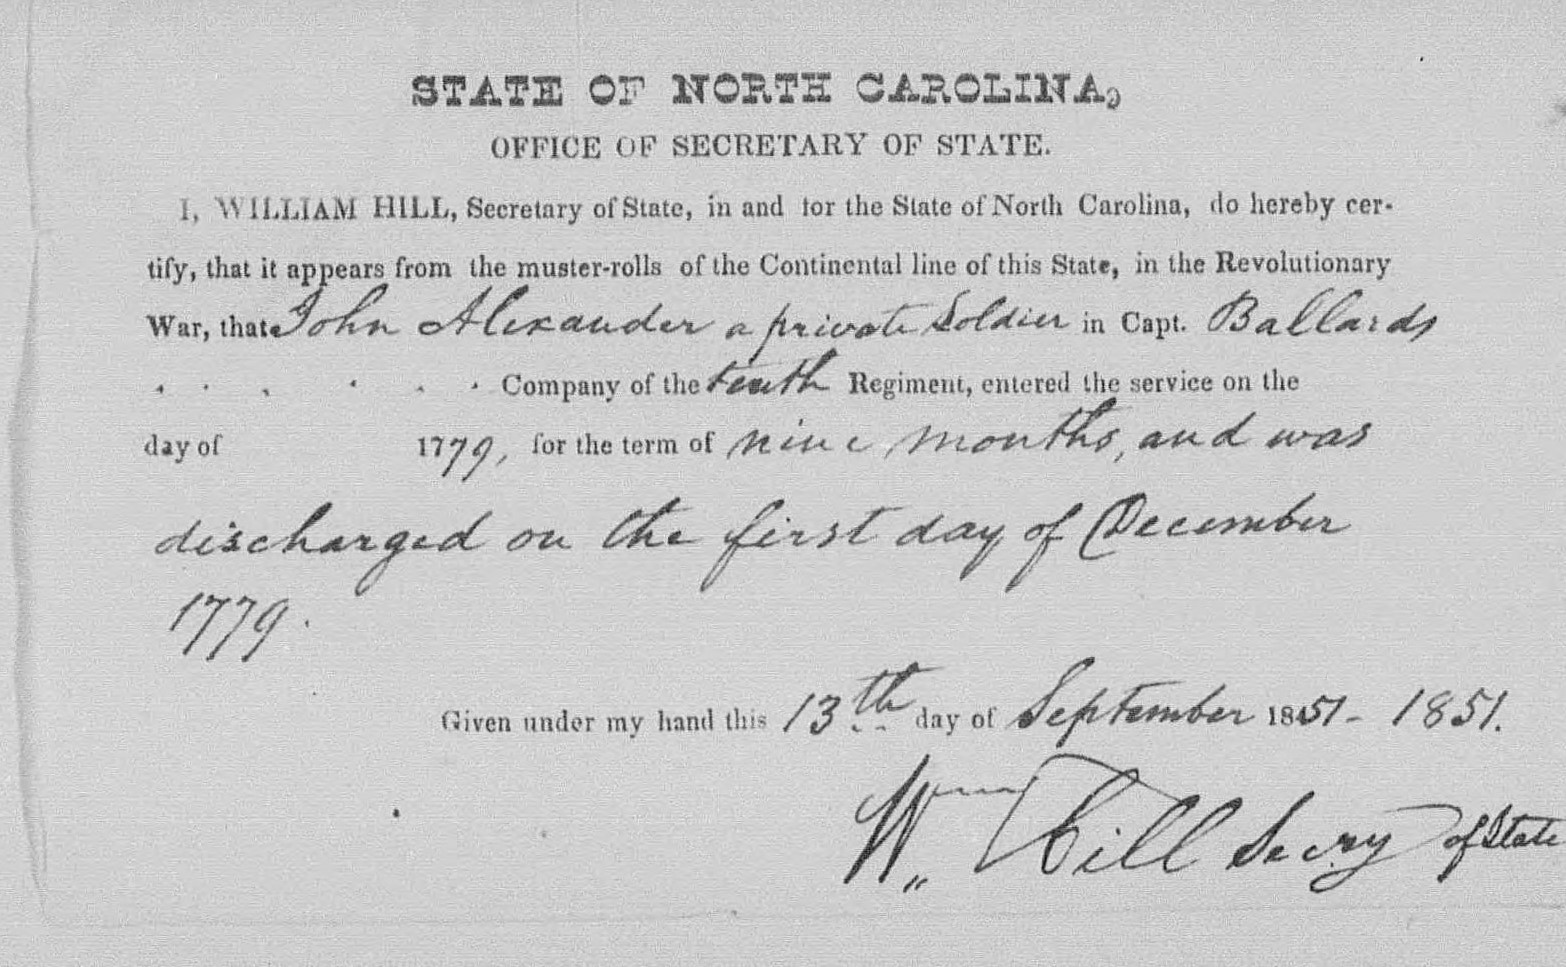 STATE OF NORTH CAROLINA,
OFFICE OF SECRETARY OF STATE.
I, WILLIAM HILL, Secretary of State, in and for the State of North Carolina, do hereby cer-
tify, that it appears from the muster-rolls of the Continental line of this State, in the Revolutionary
War, that John Alexander a private Soldier in Capt. Ballards
Company of the tenth Regiment, entered the service on the
day of 1779, for the term of nine months, and was
discharged on the first day of December
1779.
Given under my hand this 13th day of September 1851 - 1851.
Wm Hill Secry of State